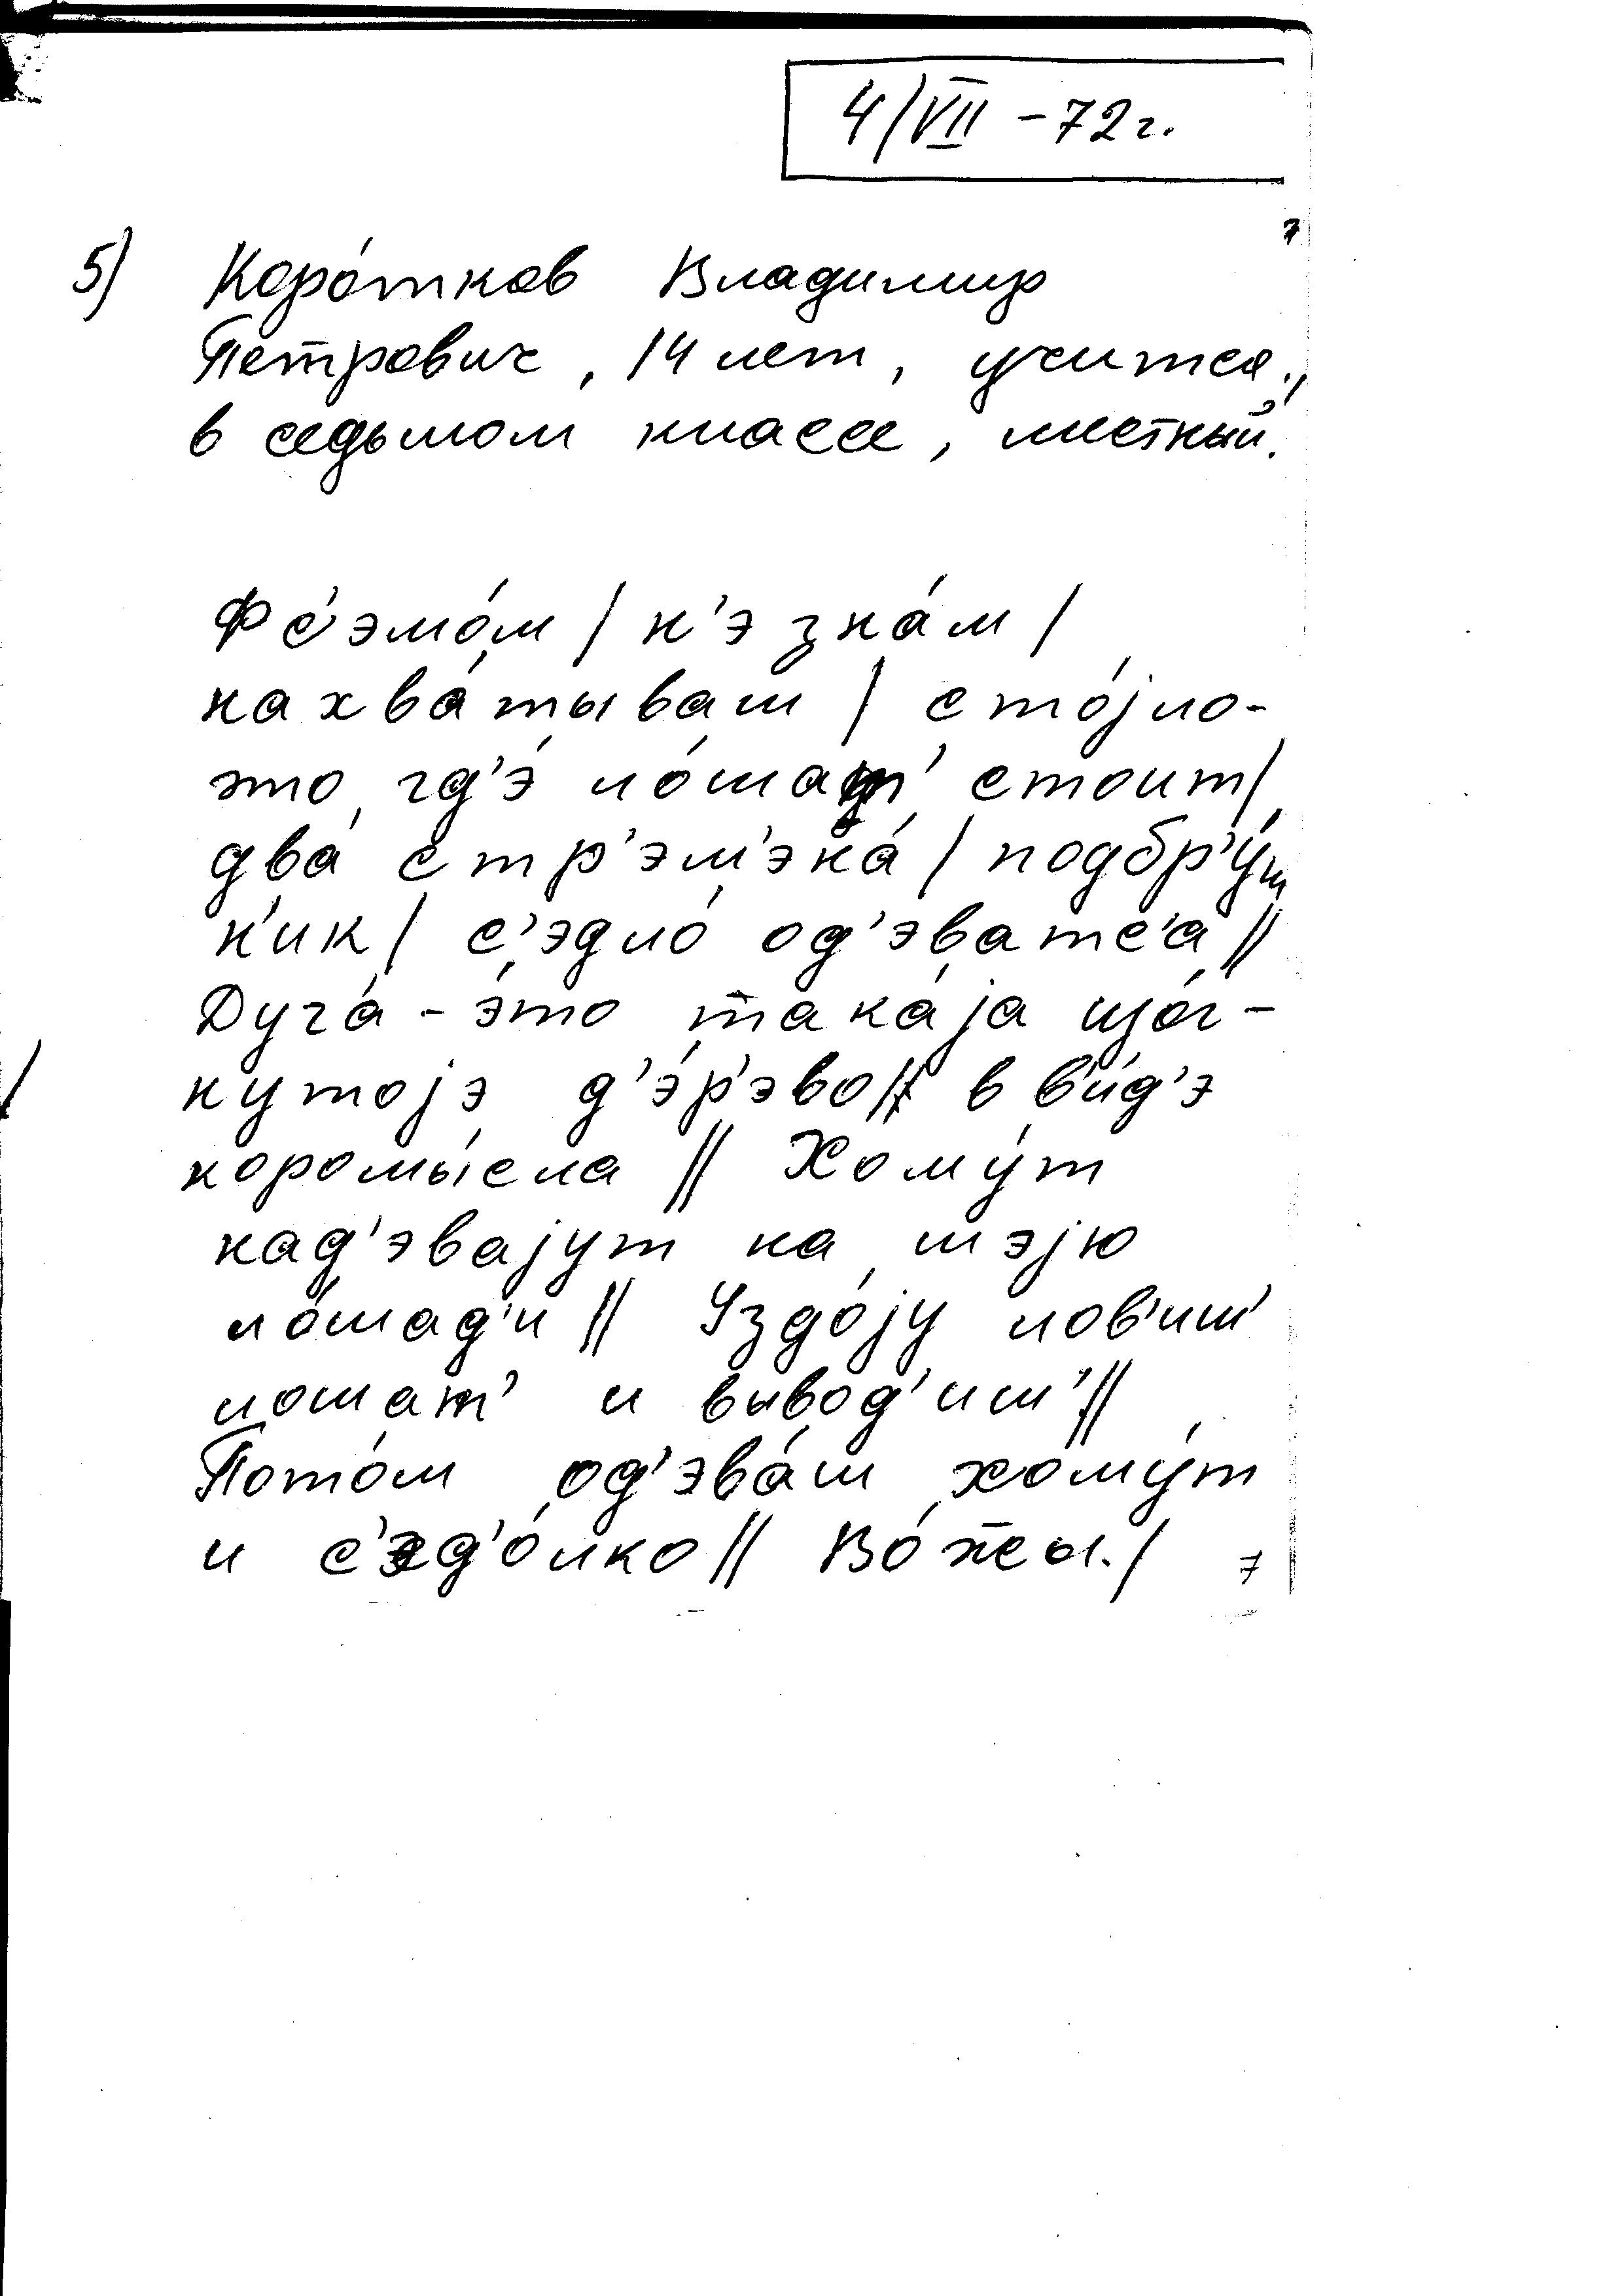 4/VII - 72 г.
7
5) Коро́тков Владимир
Петрович, 14 лет, учится,
в седьмом классе, местный.
Фс'эмо́м / н'э зна́м /
нахва́тываш / сто́jло-
это гд'э́ ло́шат' стоит /
два́ стр'эм'эна́ / подбр'у́ш
н'ик / с'эдло́ од'эватс'а //
Дуга́ - э́то така́jа
нутоjэ д'э́р'эво // в в'и́д'э
коромы́сла // Хому́т
над'эваjут на шэjю
ло́шад'и // Уздо́jу лов'иш'
лошат' и вывод'иш' //
Пото́м од'эва́ш хому́т
и с'эд'о́лко // Во́жжы. /
7